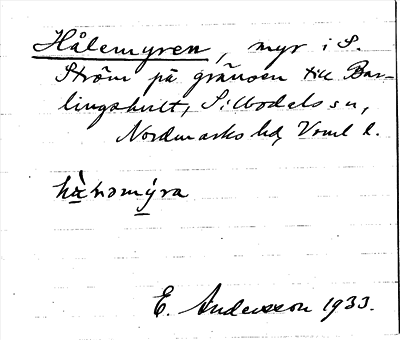 Hålemyren, myr i S.
Ström på gränsen till Bar-
lingshult, Silbodals sn,
Nordmarks hd, Vrml l.
E. Andersson 1933.